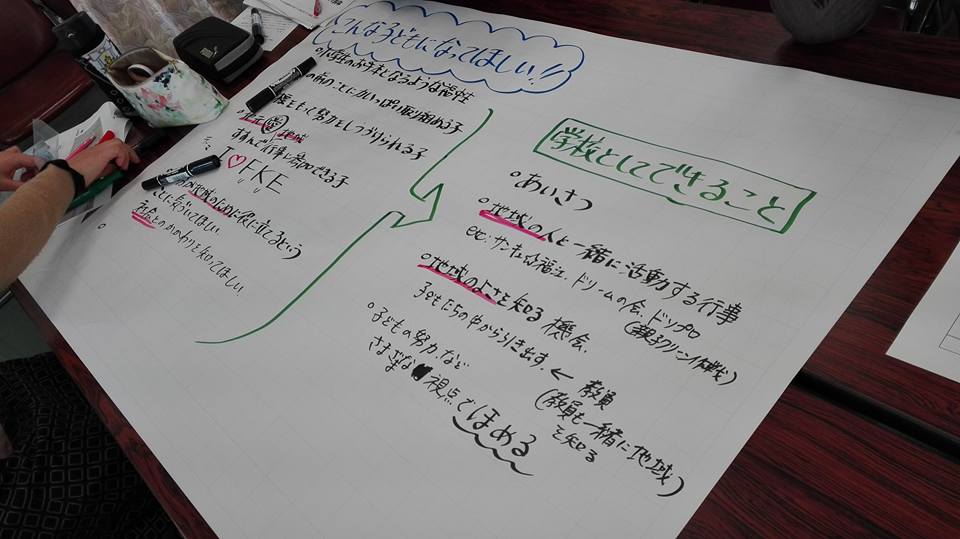 こんな子どもになってほしい!!
小学生のお手本となるような
の前のことにかいっぱい取り組める子
をもって努力をしつづけられる子
地域
すすんで行事に参加できる子
I♡FKE
地域のために役に立てるという
ことに気づいてほしい
社会とのかかわりを知ってほしい
学校としてできること
○あいさつ
○地域の人と一緒に活動する行事
etc. サンキュー福江、ドリームの会、ドリプロ
(親子クリーン作戦)
○地域のよさを知る機会、
子どもたちの中から引き出す。← 教員
(教員も一緒に地域を知る)
○子どもの努力など
さまざまな視点でほめる